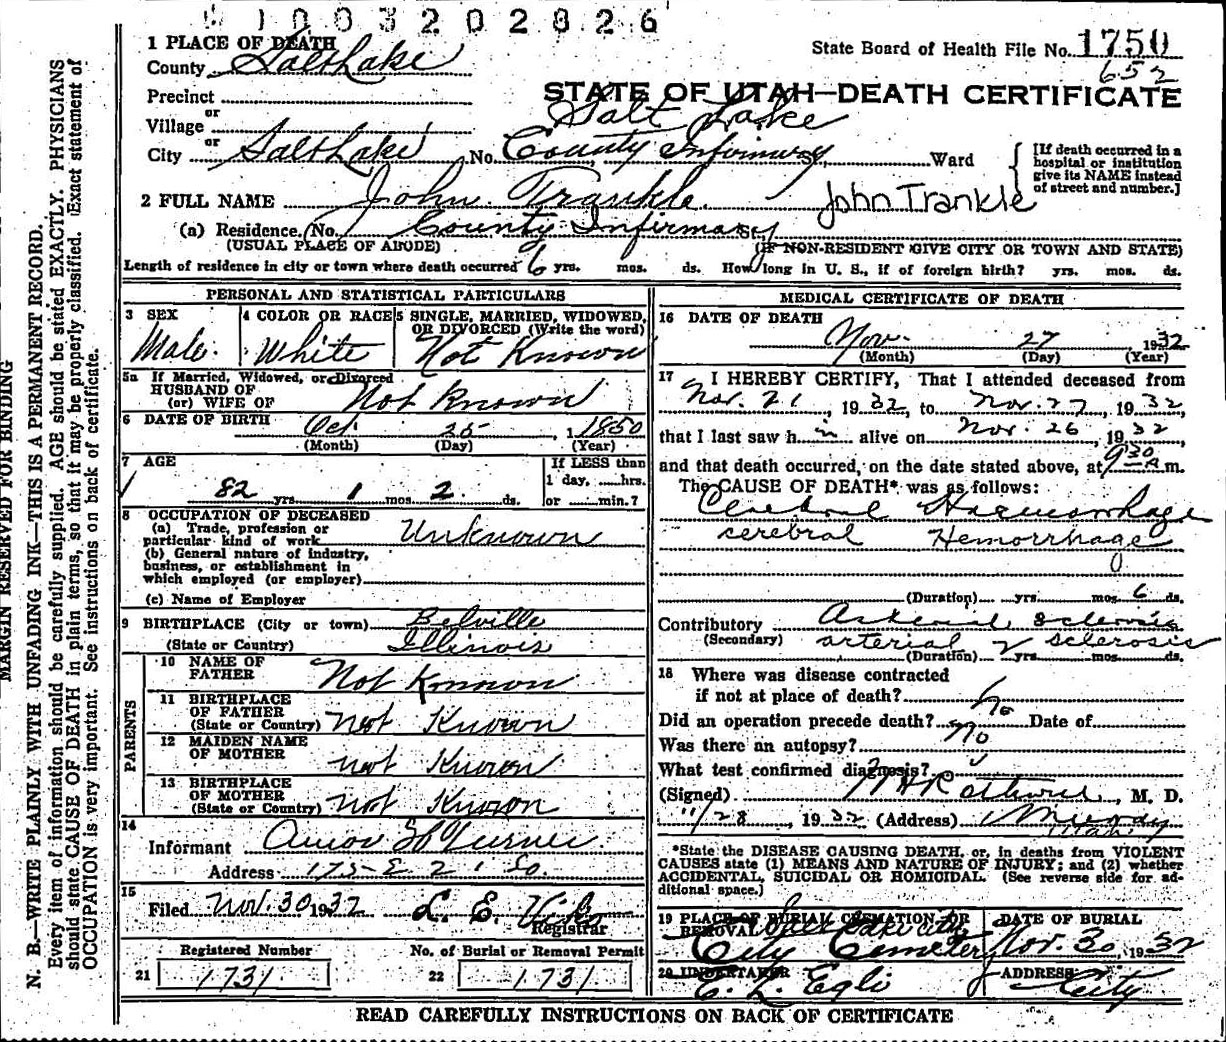 1003202826
1 PLACE OF DEATH
State Board of Health File No. 1750
County Salt Lake
652
Precinct
STATE OF UTAH—DEATH CERTIFICATE
or
Village
Salt Lake
or
City Salt Lake No. County Infirmary St. Ward
[If death occurred in a hospital or institution give its NAME instead of street and number.]
2 FULL NAME John Trankle. John Trankle
(a) Residence, (No. County Infirmary St.
(USUAL PLACE OF ABODE) (IF NON-RESIDENT GIVE CITY OR TOWN AND STATE)
Length of residence in city or town where death occurred 6 yrs. mos. ds. How long in U. S., if of foreign birth? yrs. mos. ds.
PERSONAL AND STATISTICAL PARTICULARS
3 SEX
Male.
4 COLOR OR RACE
White
5 SINGLE, MARRIED, WIDOWED, OR DIVORCED (Write the word)
Not Known
5a If Married, Widowed, or Divorced
HUSBAND OF
(or) WIFE OF Not Known
6 DATE OF BIRTH Oct. 25, 1850
(Month) (Day) (Year)
7 AGE
82 yrs. 1 mos. 2 ds.
If LESS than
1 day, hrs.
or min.?
8 OCCUPATION OF DECEASED
(a) Trade, profession or
particular kind of work Unknown
(b) General nature of industry,
business, or establishment in
which employed (or employer)
(c) Name of Employer
9 BIRTHPLACE (City or town) Belville
(State or Country) Illinois
PARENTS
10 NAME OF
FATHER Not Known
11 BIRTHPLACE
OF FATHER
(State or Country) not Known
12 MAIDEN NAME
OF MOTHER not Known
13 BIRTHPLACE
OF MOTHER
(State or Country) not Known
14
Informant Turner
Address 175-E 21 So.
15
Filed Nov. 30 1932 L. E.
Registrar
Registered Number
21 1731
No. of Burial or Removal Permit
22 1731
MEDICAL CERTIFICATE OF DEATH
16 DATE OF DEATH
Nov. 27 1932
(Month) (Day) (Year)
17 I HEREBY CERTIFY, That I attended deceased from
Nov. 21, 1932, to Nov. 27, 1932,
that I last saw him alive on Nov. 26, 1932,
and that death occurred, on the date stated above, at 930 a m.
The CAUSE OF DEATH* was as follows:
Cerebral Haemorrhage
cerebral Hemorrhage
(Duration) yrs. mos. 6 ds.
Contributory Arterial Sclerosis
(Secondary) arterial sclerosis
(Duration) yrs. mos. ds.
18 Where was disease contracted
if not at place of death?
Did an operation precede death? No Date of
Was there an autopsy? no
What test confirmed diagnosis?
(Signed) M. D.
11/28, 1932 (Address) Murray
Utah
*State the DISEASE CAUSING DEATH, or, in deaths from VIOLENT
CAUSES state (1) MEANS AND NATURE OF INJURY; and (2) whether
ACCIDENTAL, SUICIDAL OR HOMICIDAL. (See reverse side for ad-
ditional space.)
19 PLACE OF BURIAL CREMATION OR
REMOVAL Salt Lake City
City Cemetery
DATE OF BURIAL
Nov. 30, 1932
20 UNDERTAKER
E. L. Egli
ADDRESS
City
READ CAREFULLY INSTRUCTIONS ON BACK OF CERTIFICATE
MARGIN RESERVED FOR BINDING
N. B.—WRITE PLAINLY WITH UNFADING INK—THIS IS A PERMANENT RECORD.
Every item of information should be carefully supplied. AGE should be stated EXACTLY. PHYSICIANS
should state CAUSE OF DEATH in plain terms, so that it may be properly classified. Exact statement of
OCCUPATION is very important. See instructions on back of certificate.